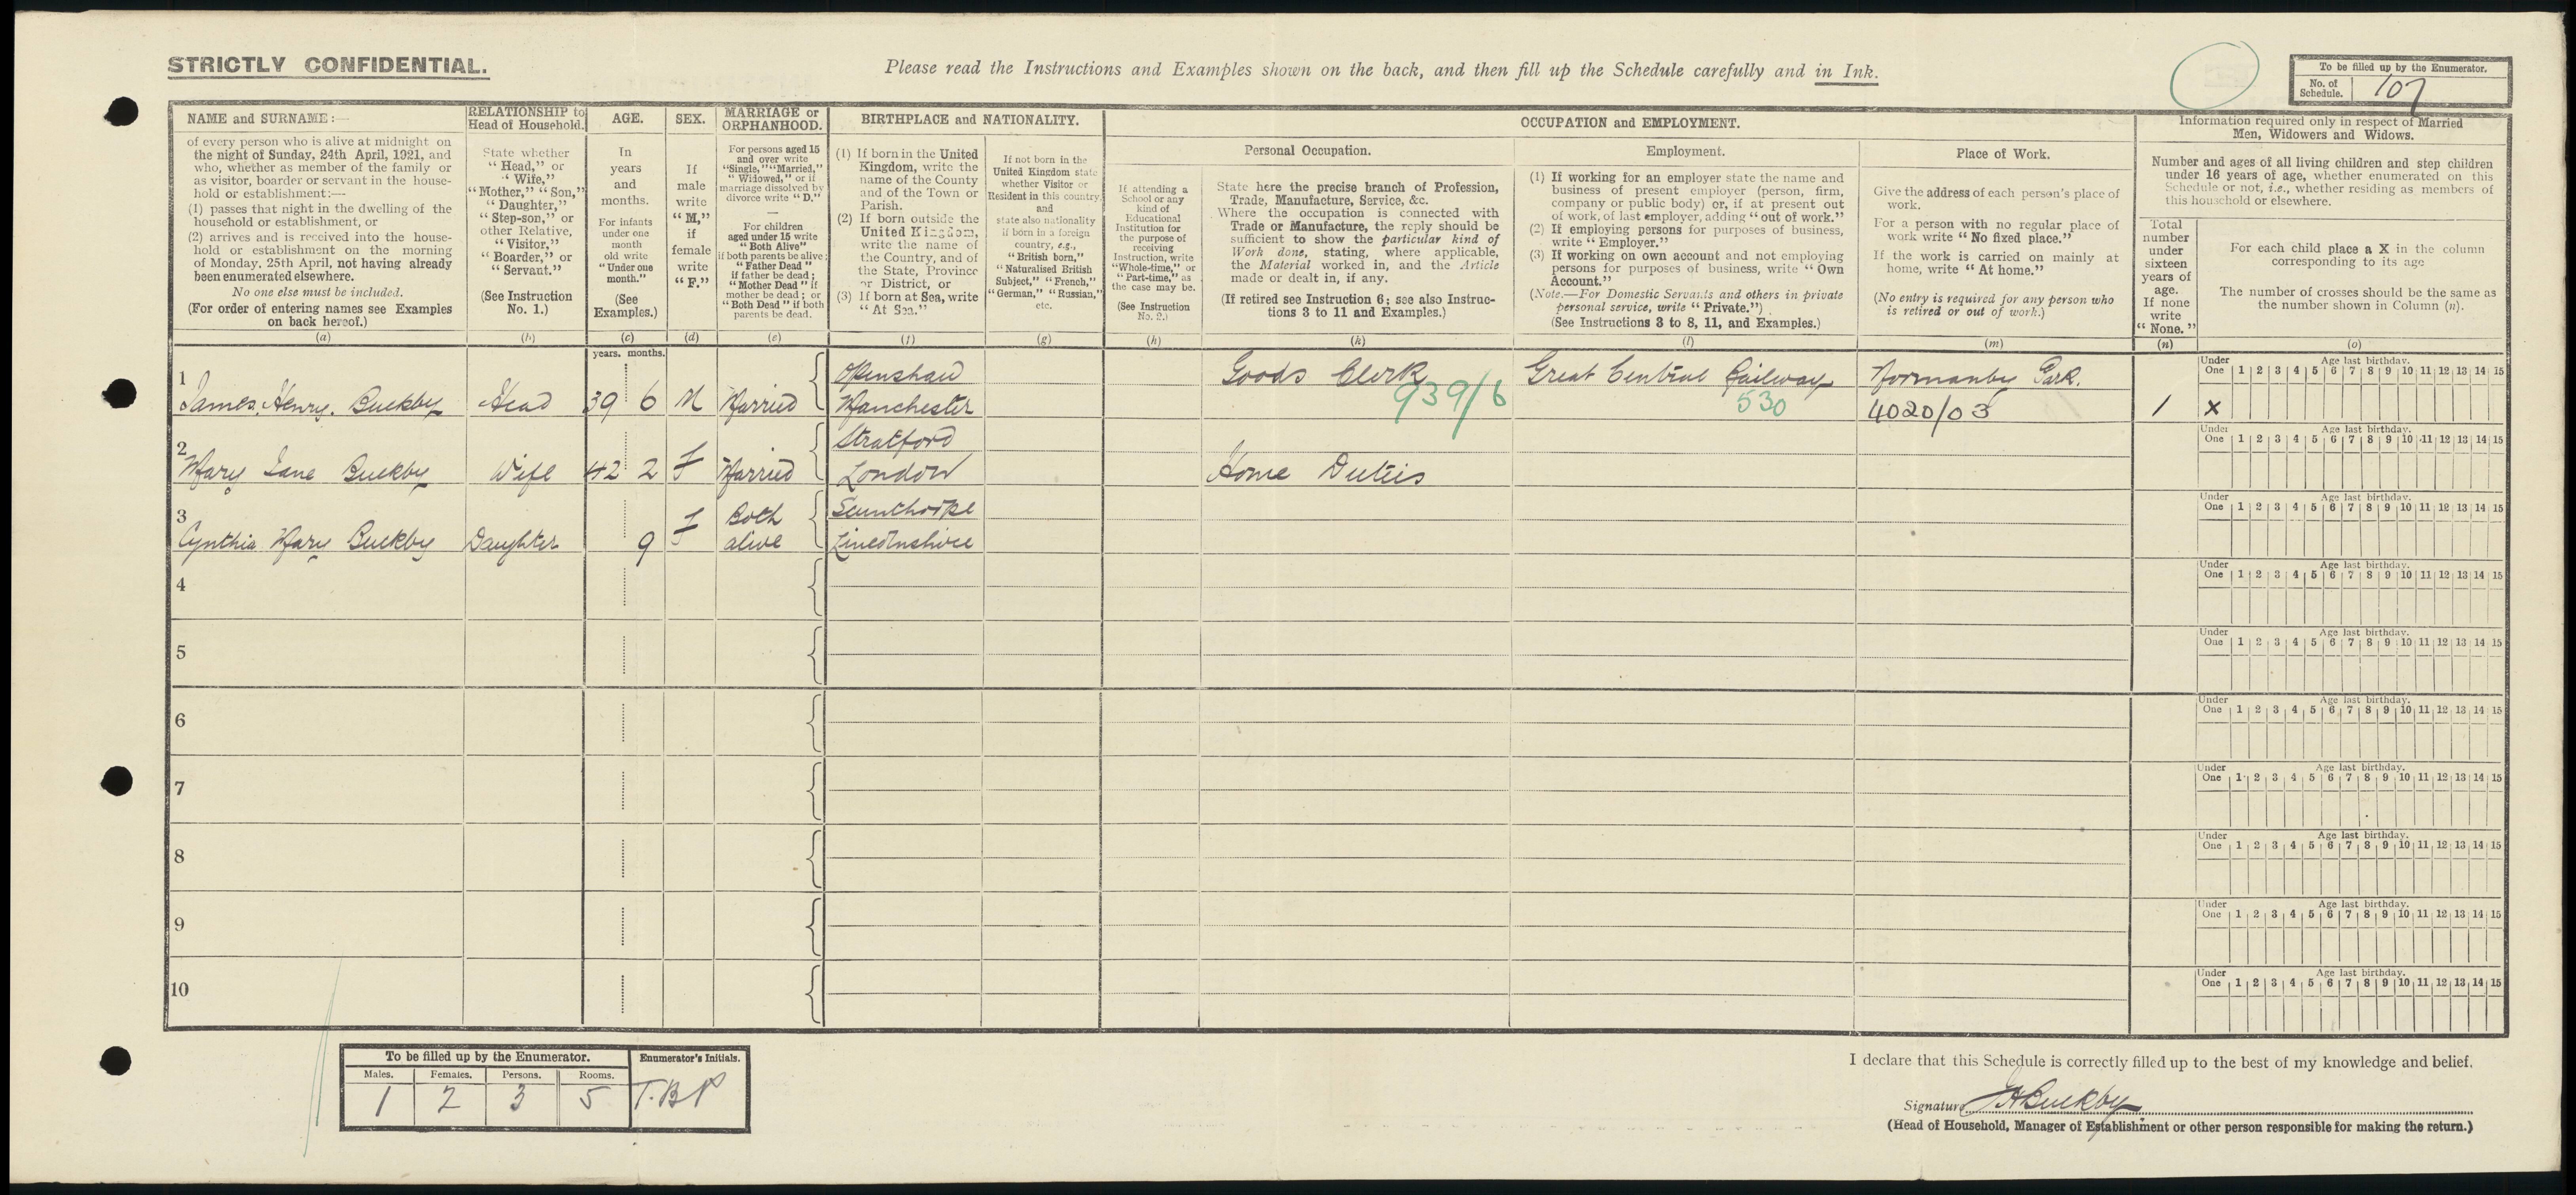 STRICTLY CONFIDENTIAL.
Please read the Instructions and Examples shown on the back, and then fill up the Schedule carefully and in Ink.
To be filled up by the Enumerator.
No. of
Schedule.
107
NAME and SURNAME:—
of every person who is alive at midnight on
the night of Sunday, 24th April, 1921, and
who, whether as member of the family or
as visitor, boarder or servant in the house-
hold or establishment:—
(1) passes that night in the dwelling of the
household or establishment, or
(2) arrives and is received into the house-
hold or establishment on the morning
of Monday, 25th April, not having already
been enumerated elsewhere.
No one else must be included.
(For order of entering names see Examples
on back hereof.)
(a)
RELATIONSHIP to
Head of Household.
State whether
"Head," or
"Wife,"
"Mother," "Son,"
"Daughter,"
"Step-son," or
other Relative,
"Visitor,"
"Boarder," or
"Servant."
(See Instruction
No. 1.)
(b)
AGE.
In
years
and
months.
For infants
under one
month
old write
"Under one
month."
(See
Examples.)
(c)
SEX.
If
male
write
"M,"
if
female
write
"F."
(d)
MARRIAGE or
ORPHANHOOD.
For persons aged 15
and over write
"Single," "Married,"
"Widowed," or if
marriage dissolved by
divorce write "D."
—
For children
aged under 15 write
"Both Alive"
if both parents be alive;
"Father Dead"
if father be dead;
"Mother Dead" if
mother be dead; or
"Both Dead" if both
parents be dead.
(e)
BIRTHPLACE and NATIONALITY.
(1) If born in the United
Kingdom, write the
name of the County
and of the Town or
Parish.
(2) If born outside the
United Kingdom,
write the name of
the Country, and of
the State, Province
or District, or
(3) If born at Sea, write
"At Sea."
(f)
If not born in the
United Kingdom state
whether Visitor or
Resident in this country
and
state also nationality
if born in a foreign
country, e.g.,
"British born,"
"Naturalised British
Subject," "French,"
"German," "Russian,"
etc.
(g)
OCCUPATION and EMPLOYMENT.
If attending a
School or any
kind of
Educational
Institution for
the purpose of
receiving
Instruction, write
"Whole-time," or
"Part-time," as
the case may be.
(See Instruction
No. 2.)
(h)
Personal Occupation.
State here the precise branch of Profession,
Trade, Manufacture, Service, &c.
Where the occupation is connected with
Trade or Manufacture, the reply should be
sufficient to show the particular kind of
Work done, stating, where applicable,
the Material worked in, and the Article
made or dealt in, if any.
(If retired see Instruction 6; see also Instruc-
tions 3 to 11 and Examples.)
(k)
Employment.
(1) If working for an employer state the name and
business of present employer (person, firm,
company or public body) or, if at present out
of work, of last employer, adding "out of work."
(2) If employing persons for purposes of business,
write "Employer."
(3) If working on own account and not employing
persons for purposes of business, write "Own
Account."
(Note.—For Domestic Servants and others in private
personal service, write "Private.")
(See Instructions 3 to 8, 11, and Examples.)
(l)
Place of Work.
Give the address of each person's place of
work.
For a person with no regular place of
work write "No fixed place."
If the work is carried on mainly at
home, write "At home."
(No entry is required for any person who
is retired or out of work.)
(m)
Information required only in respect of Married
Men, Widowers and Widows.
Number and ages of all living children and step children
under 16 years of age, whether enumerated on this
Schedule or not, i.e., whether residing as members of
this household or elsewhere.
Total
number
under
sixteen
years of
age.
If none
write
"None."
(n)
For each child place a X in the column
corresponding to its age
The number of crosses should be the same as
the number shown in Column (n).
(o)
years. months.
1 James Henry. Buckby Head 39 6 M Married Openshaw
Manchester Goods Clerk 939/6 Great Central Railway 530 Normanby Park.
4020/03 1 X
Under One Age last birthday. 1 2 3 4 5 6 7 8 9 10 11 12 13 14 15
2 Mary Jane Buckby Wife 42 2 F Married Stratford
London Home Duties
Under One Age last birthday. 1 2 3 4 5 6 7 8 9 10 11 12 13 14 15
3 Cynthia Mary Buckby Daughter 9 F Both
alive Scunthorpe
Lincolnshire
Under One Age last birthday. 1 2 3 4 5 6 7 8 9 10 11 12 13 14 15
4
Under One Age last birthday. 1 2 3 4 5 6 7 8 9 10 11 12 13 14 15
5
Under One Age last birthday. 1 2 3 4 5 6 7 8 9 10 11 12 13 14 15
6
Under One Age last birthday. 1 2 3 4 5 6 7 8 9 10 11 12 13 14 15
7
Under One Age last birthday. 1 2 3 4 5 6 7 8 9 10 11 12 13 14 15
8
Under One Age last birthday. 1 2 3 4 5 6 7 8 9 10 11 12 13 14 15
9
Under One Age last birthday. 1 2 3 4 5 6 7 8 9 10 11 12 13 14 15
10
Under One Age last birthday. 1 2 3 4 5 6 7 8 9 10 11 12 13 14 15
To be filled up by the Enumerator.
Enumerator's Initials.
Males. Females. Persons. Rooms.
1 2 3 5 T.B.P
I declare that this Schedule is correctly filled up to the best of my knowledge and belief.
Signature JH Buckby
(Head of Household, Manager of Establishment or other person responsible for making the return.)